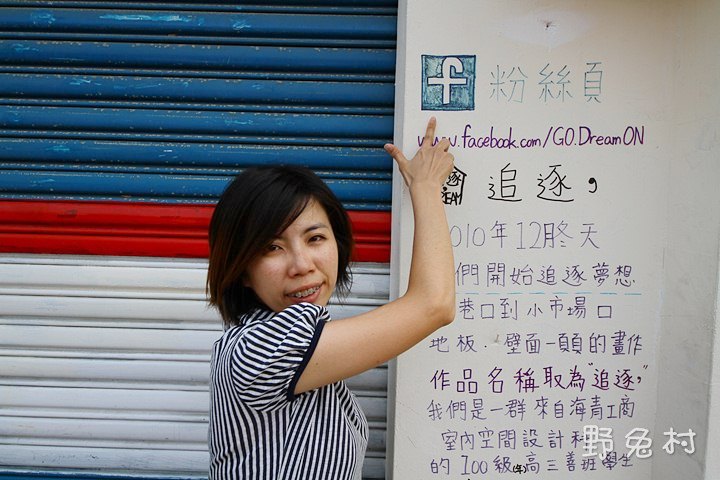 f 粉絲頁
www.facebook.com/GO.DreamON
追逐，
2010年12月冬天
們開始追逐夢想
巷口到小市場口
地板．壁面一頁頁的畫作
作品名稱取為"追逐，"
我們是一群來自海青工商
室內空間設計科
的100級(年)高三善班學生
野兔村